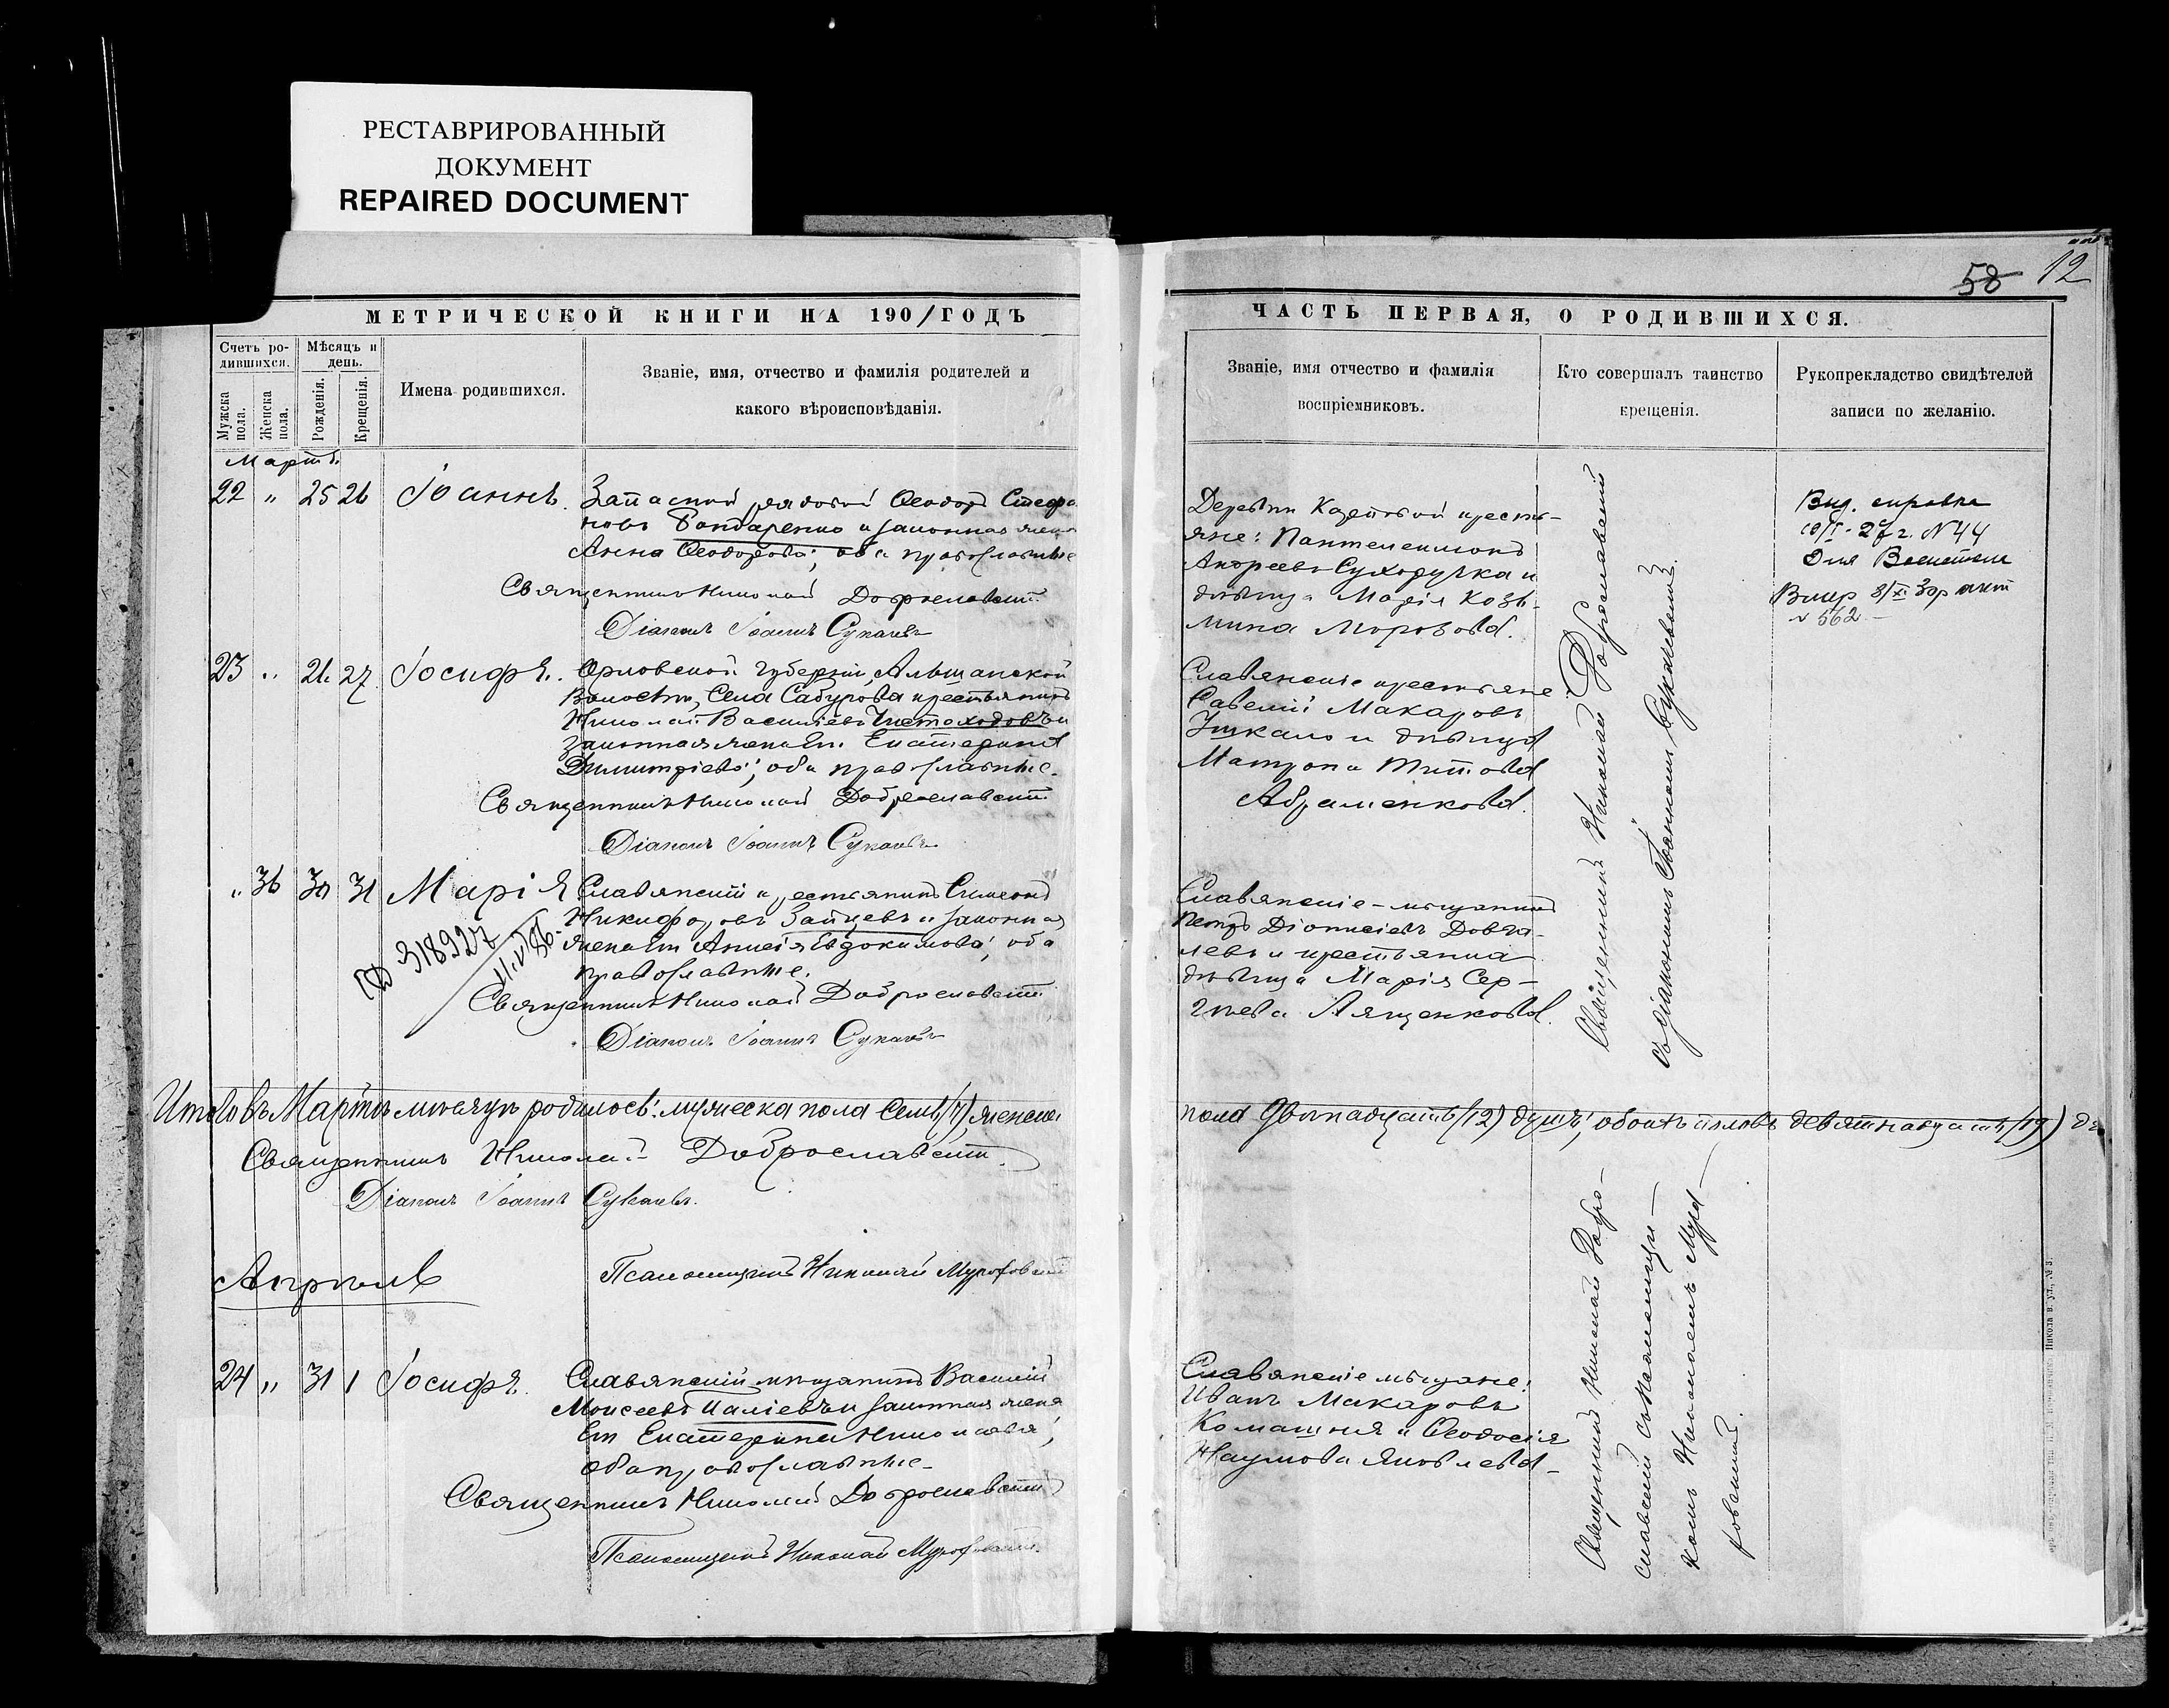 РЕСТАВРИРОВАННЫЙ
ДОКУМЕНТ
REPAIRED DOCUMENT
МЕТРИЧЕСКОЙ КНИГИ НА 1901 ГОДЪ
Счетъ ро-
дившихся.
Мѣсяцъ и
день.
Мужска
пола.
Женска
пола.
Рожденія.
Крещенія.
Имена родившихся.
Званіе, имя, отчество и фамилія родителей и
какого вѣроисповѣданія.
Мартъ.
22 " 25 26 Іоаннъ.
Запасный рядовой Ѳеодоръ Стефа
новъ Бондаренко и законная жена
Анна Ѳеодорова; оба православные
Священникъ Николай Доброславскій
Діаконъ Іоаннъ Сукачевъ
23 " 26 27 Іосифъ.
Орловской губерніи, Альшанской
Волости, Села Сабурова крестьянинъ
Николай Васильевъ Чистоходовъ и
законная жена Его Екатерина
Димитріева; оба православные.
Священникъ Николай Доброславскій
Діаконъ Іоаннъ Сукачевъ
" 36 30 31 Марія
Славянскій крестьянинъ Симеонъ
Никифоровъ Зайцевъ и законная
жена Его Анисія Евдокимова; оба
православные.
318927
Священникъ Николай Доброславскій
Діаконъ Іоаннъ Сукачевъ
Итого въ Мартѣ мѣсяцѣ родилось: мужеска пола Семь (7), женска
Священникъ Николай Доброславскій.
Діаконъ Іоаннъ Сукачевъ.
Апрѣль
Псаломщикъ Николай
24 " 31 1 Іосифъ.
Славянскій мѣщанинъ Василій
Моисеевъ Паліевъ и законная жена
Его Екатерина Николаева;
оба православные.
Священникъ Николай Доброславскій
Псаломщикъ Николай
58 12
ЧАСТЬ ПЕРВАЯ, О РОДИВШИХСЯ.
Званіе, имя отчество и фамилія
воспріемниковъ.
Кто совершалъ таинство
крещенія.
Рукоприкладство свидѣтелей
записи по желанію.
яне: Пантелеимонъ
Андреевъ Сухоручка и
дѣвица Марія Козь-
мина Морозова.
Выд. справка
27 г. N 44
Для
Вмер 8/XI 30р акт
N 562 —
Славянскіе крестьяне
Савелій Макаровъ
Ушкало и дѣвица
Матрона Титова
Абраменкова.
Славянскіе – мѣщанинъ
Петръ Діонисіевъ Довга-
левъ и крестьянка
дѣвица Марія Сер-
гѣева Лященкова.
Священникъ Николай Доброславскій
съ діакономъ Іоанномъ Сукачевымъ.
пола Двѣнадцать (12) душъ; обоихъ половъ девятнадцать (19)
Славянскіе мѣщане:
Иванъ Макаровъ
Комашня и Ѳеодосія
Наумова Яковлева.
Священникъ Николай Добро-
славскій съ Псаломщи-
комъ Николаемъ